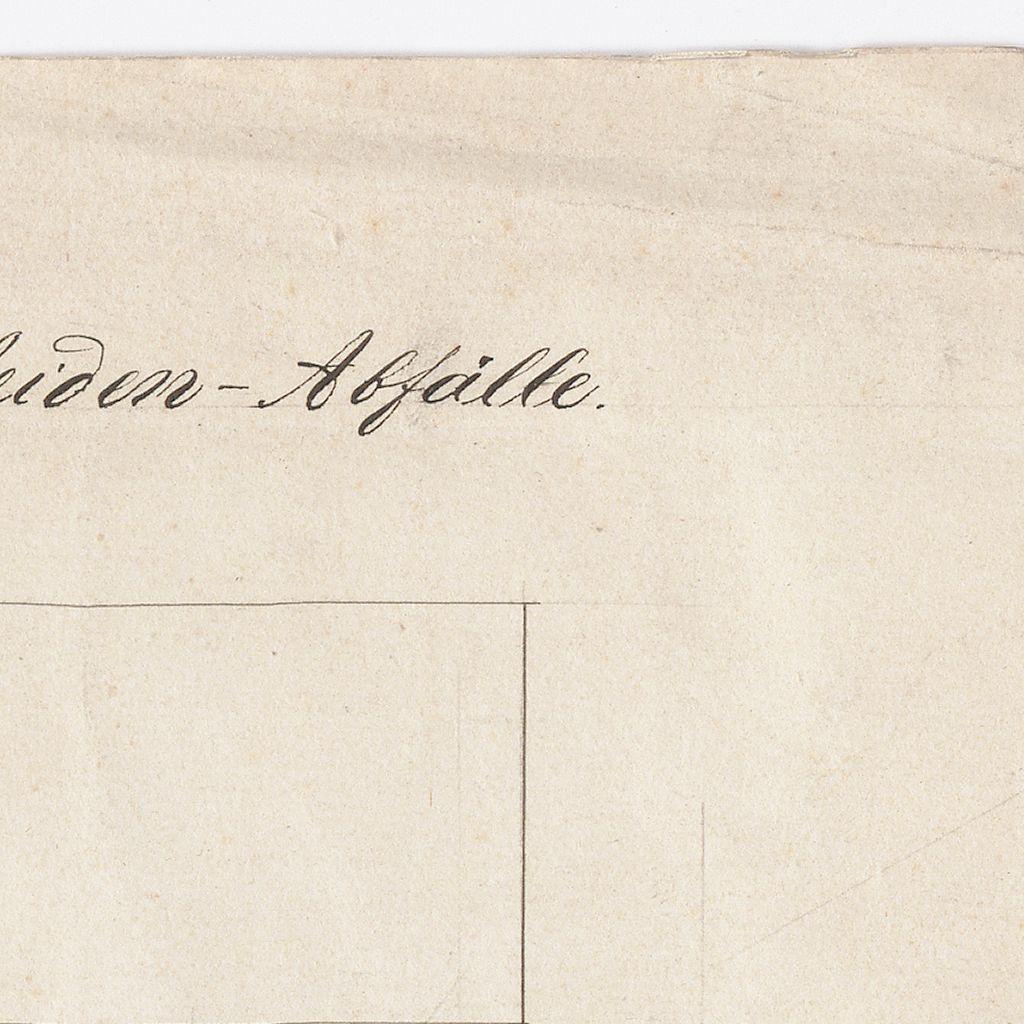 eiden-Abfälle.